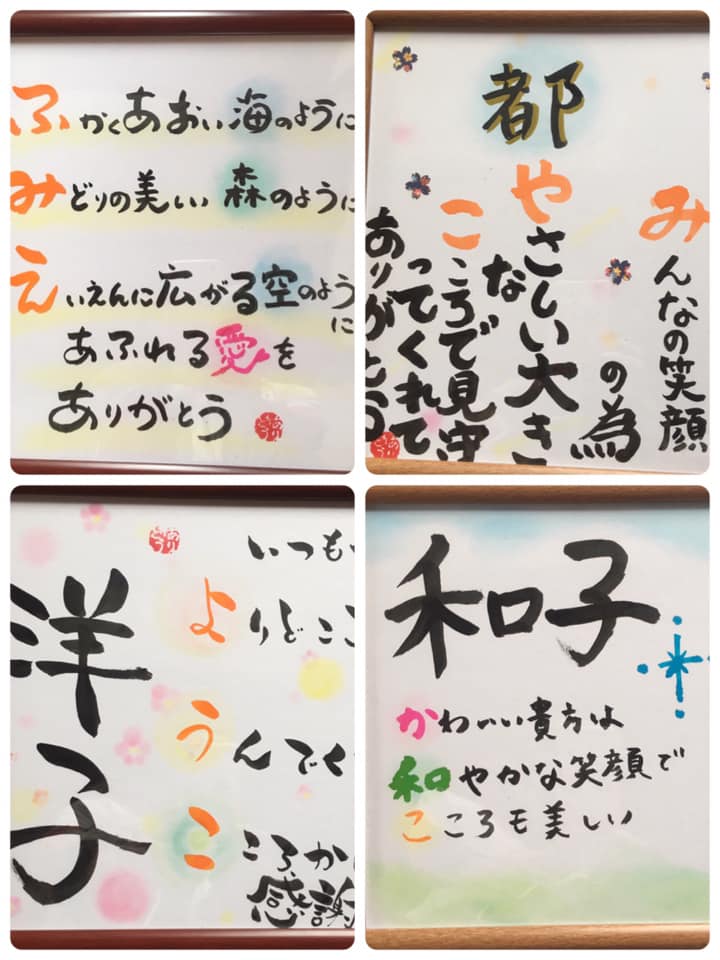 ふかくあおい海のように
みどりの美しい森のように
えいえんに広がる空のように
あふれる愛を
ありがとう
都
みんなの笑顔
の為
やさしい大き
な
こころで見守
ってくれて
ありがとう
洋子
いつも
よりどこ
うんでく
こころか
感謝
和子
かわいい貴方は
和やかな笑顔で
こころも美しい